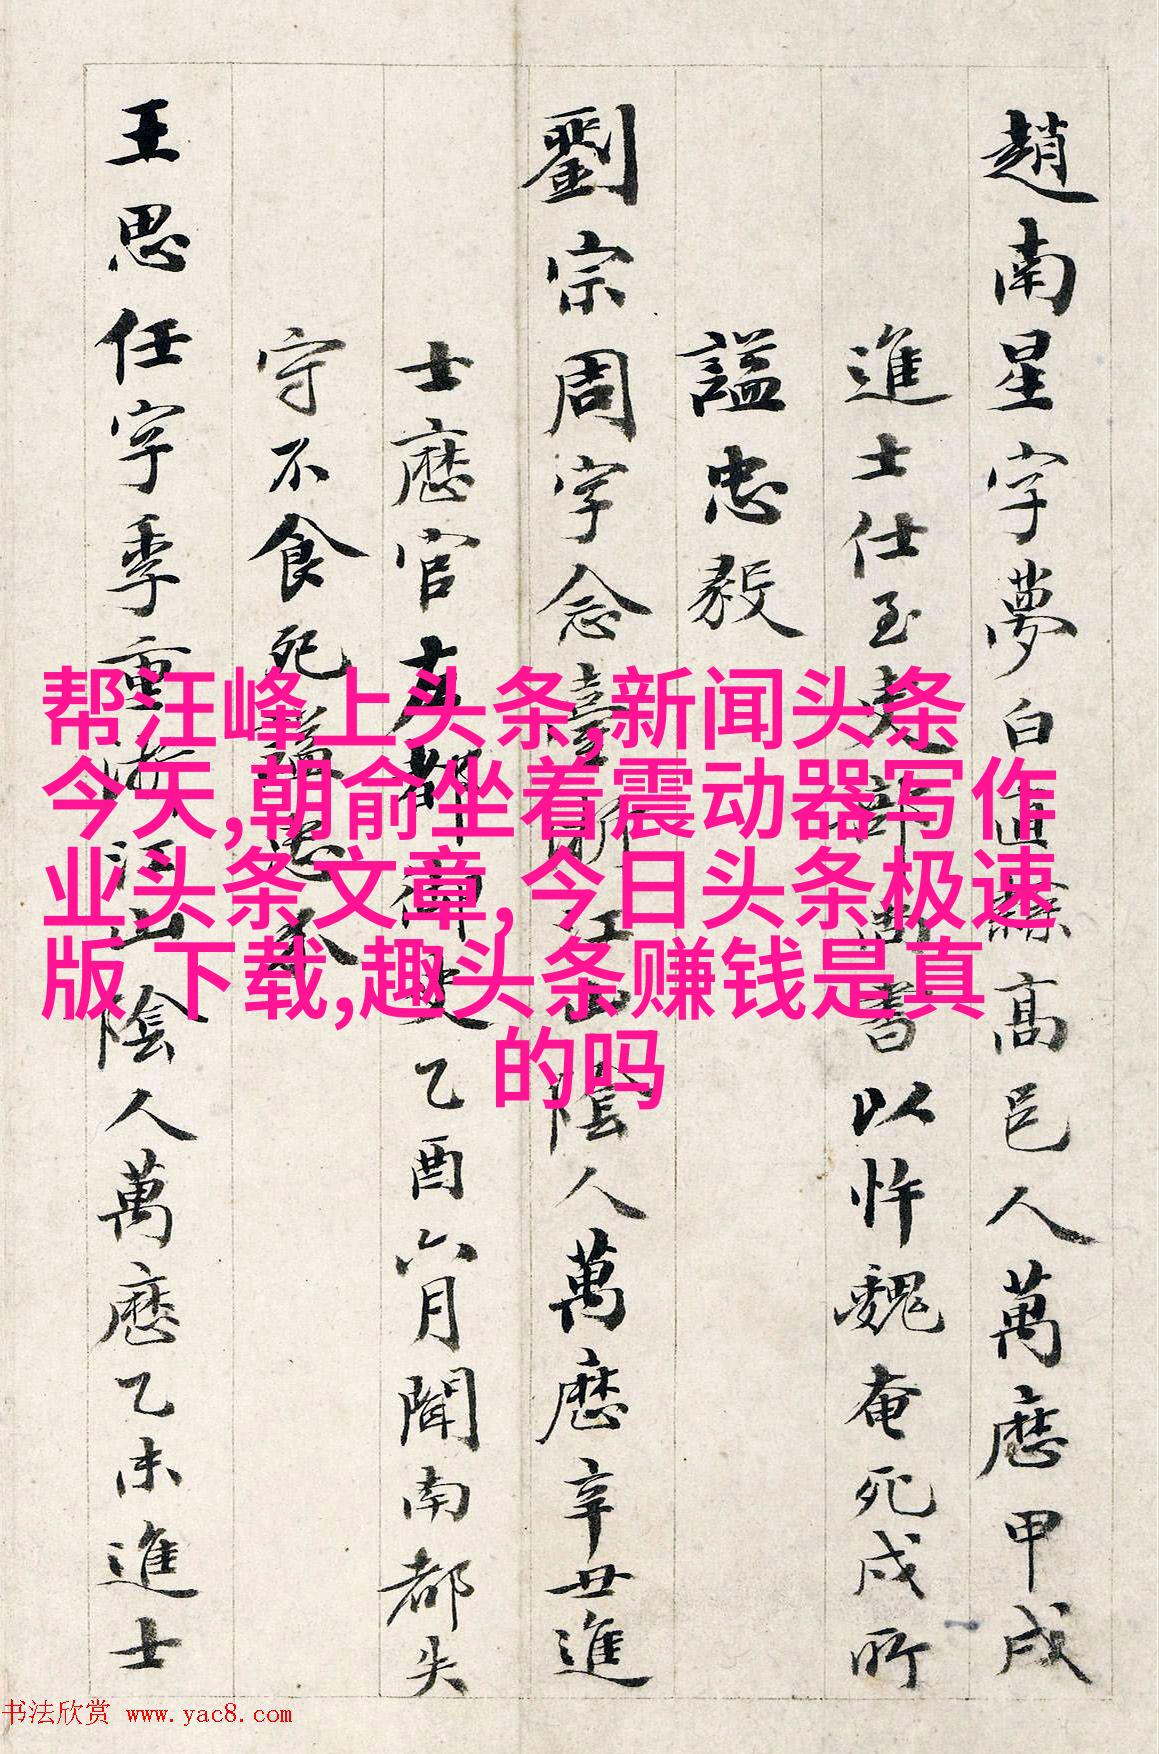 趙南星字夢白直隸高邑人萬曆甲戌
進士仕至吏部尚書以忤魏奄死戍所
諡忠毅
劉宗周字念臺浙江山陰人萬曆辛丑進
士歷官左都御史乙酉六月聞南都失
守不食死諡忠介
王思任字季重浙江山陰人萬曆乙未進士
帮汪峰上头条,新闻头条
今天,朝俞坐着震动器写作
业头条文章,今日头条极速
版 下载,趣头条赚钱是真
的吗
书法欣赏 www.yac8.com